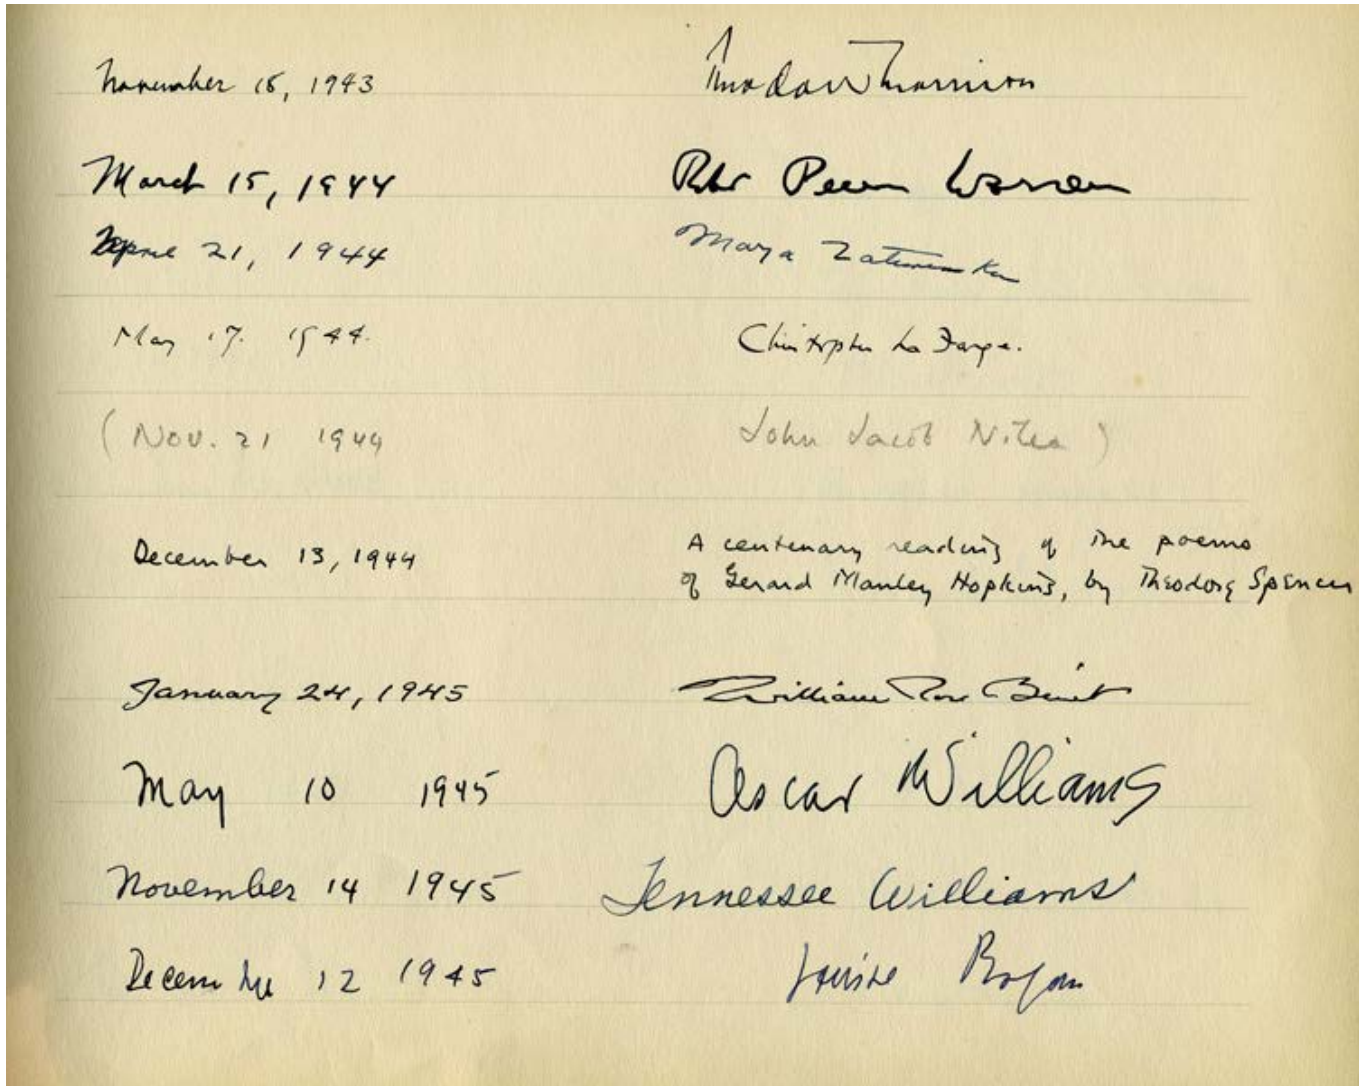 November 18, 1943 Theodore Morrison
March 15, 1944 Robt Penn Warren
April 21, 1944 Marya Zaturenska
May 17. 1944. Christopher La Farge.
(Nov. 21 1944 John Jacob Niles)
December 13, 1944 A centenary reading of the poems
of Gerard Manley Hopkins, by Theodore Spencer
January 24, 1945 William Rose Benét
May 10 1945 Oscar Williams
November 14 1945 Tennessee Williams
December 12 1945 Louise Bogan